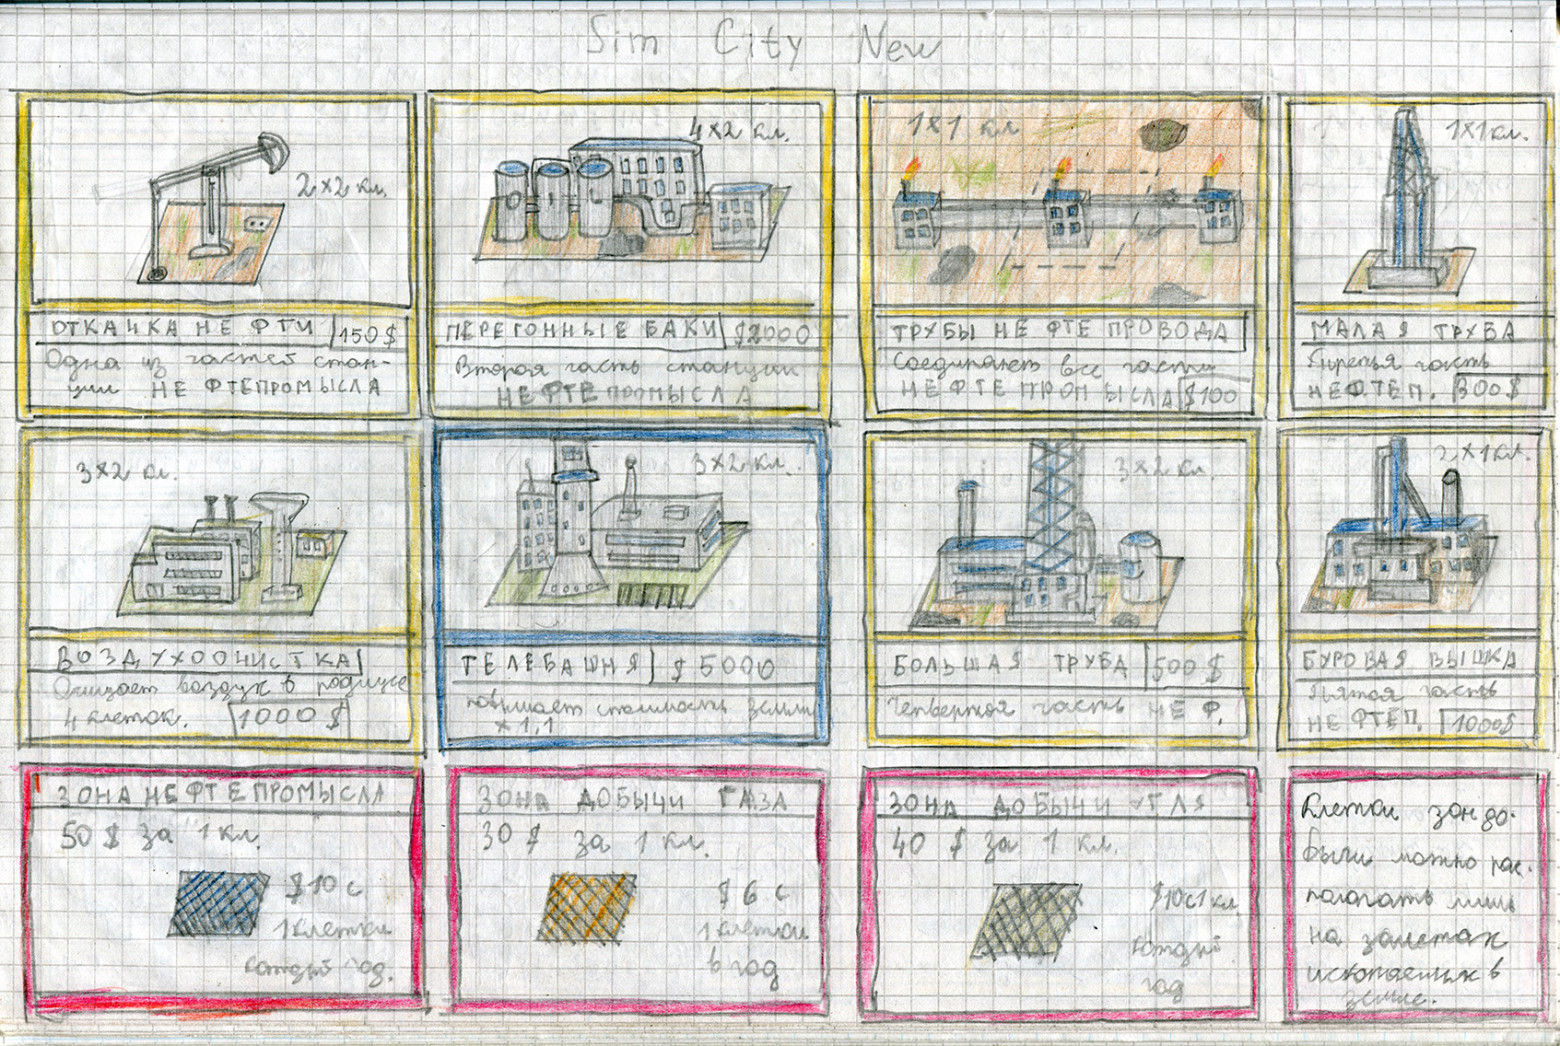 Sim City New
2×2 кл.
ОТКАЧКА НЕФТИ 150$
Одна из частей стан-
ции НЕФТЕПРОМЫСЛА
4×2 кл.
ПЕРЕГОННЫЕ БАКИ $2000
Вторая часть станции
НЕФТЕПРОМЫСЛА
1×1 кл
ТРУБЫ НЕФТЕПРОВОДА
Соединяет все части
НЕФТЕПРОМЫСЛА $100
1×1 кл.
МАЛАЯ ТРУБА
часть
НЕФТЕП. 300$
3×2 кл.
ВОЗДУХООЧИСТКА
Очищает воздух в радиусе
4 клеток. 1000$
3×2 кл.
ТЕЛЕБАШНЯ $5000
повышает стоимость земли
×1,1
3×2 кл.
БОЛЬШАЯ ТРУБА 500$
Четвертая часть НЕФ.
×1 кл.
БУРОВАЯ ВЫШКА
Пятая часть
НЕФТЕП. 1000$
ЗОНА НЕФТЕПРОМЫСЛА
50$ за 1 кл.
$10 с
1 клетки
каждый год.
ЗОНА ДОБЫЧИ ГАЗА
30$ за 1 кл.
$6 с
1 клетки
в год
ЗОНА ДОБЫЧИ УГЛЯ
40$ за 1 кл.
$10 с 1 кл.
каждый
год
Клетки зон до-
бычи можно рас-
пологать лишь
на залежах
ископаемых в
земле.